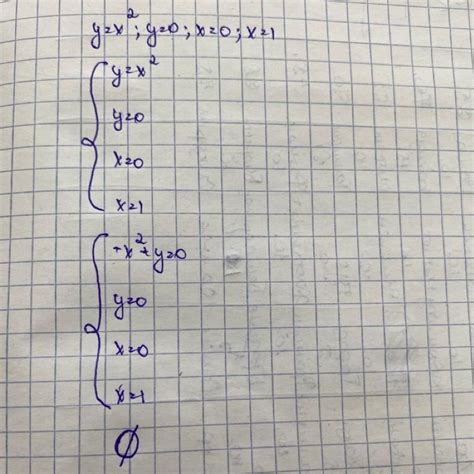 y=x²; y=0; x=0; x=1
y=x²
y=0
x=0
x=1
-x²+y=0
y=0
x=0
x=1
Ø